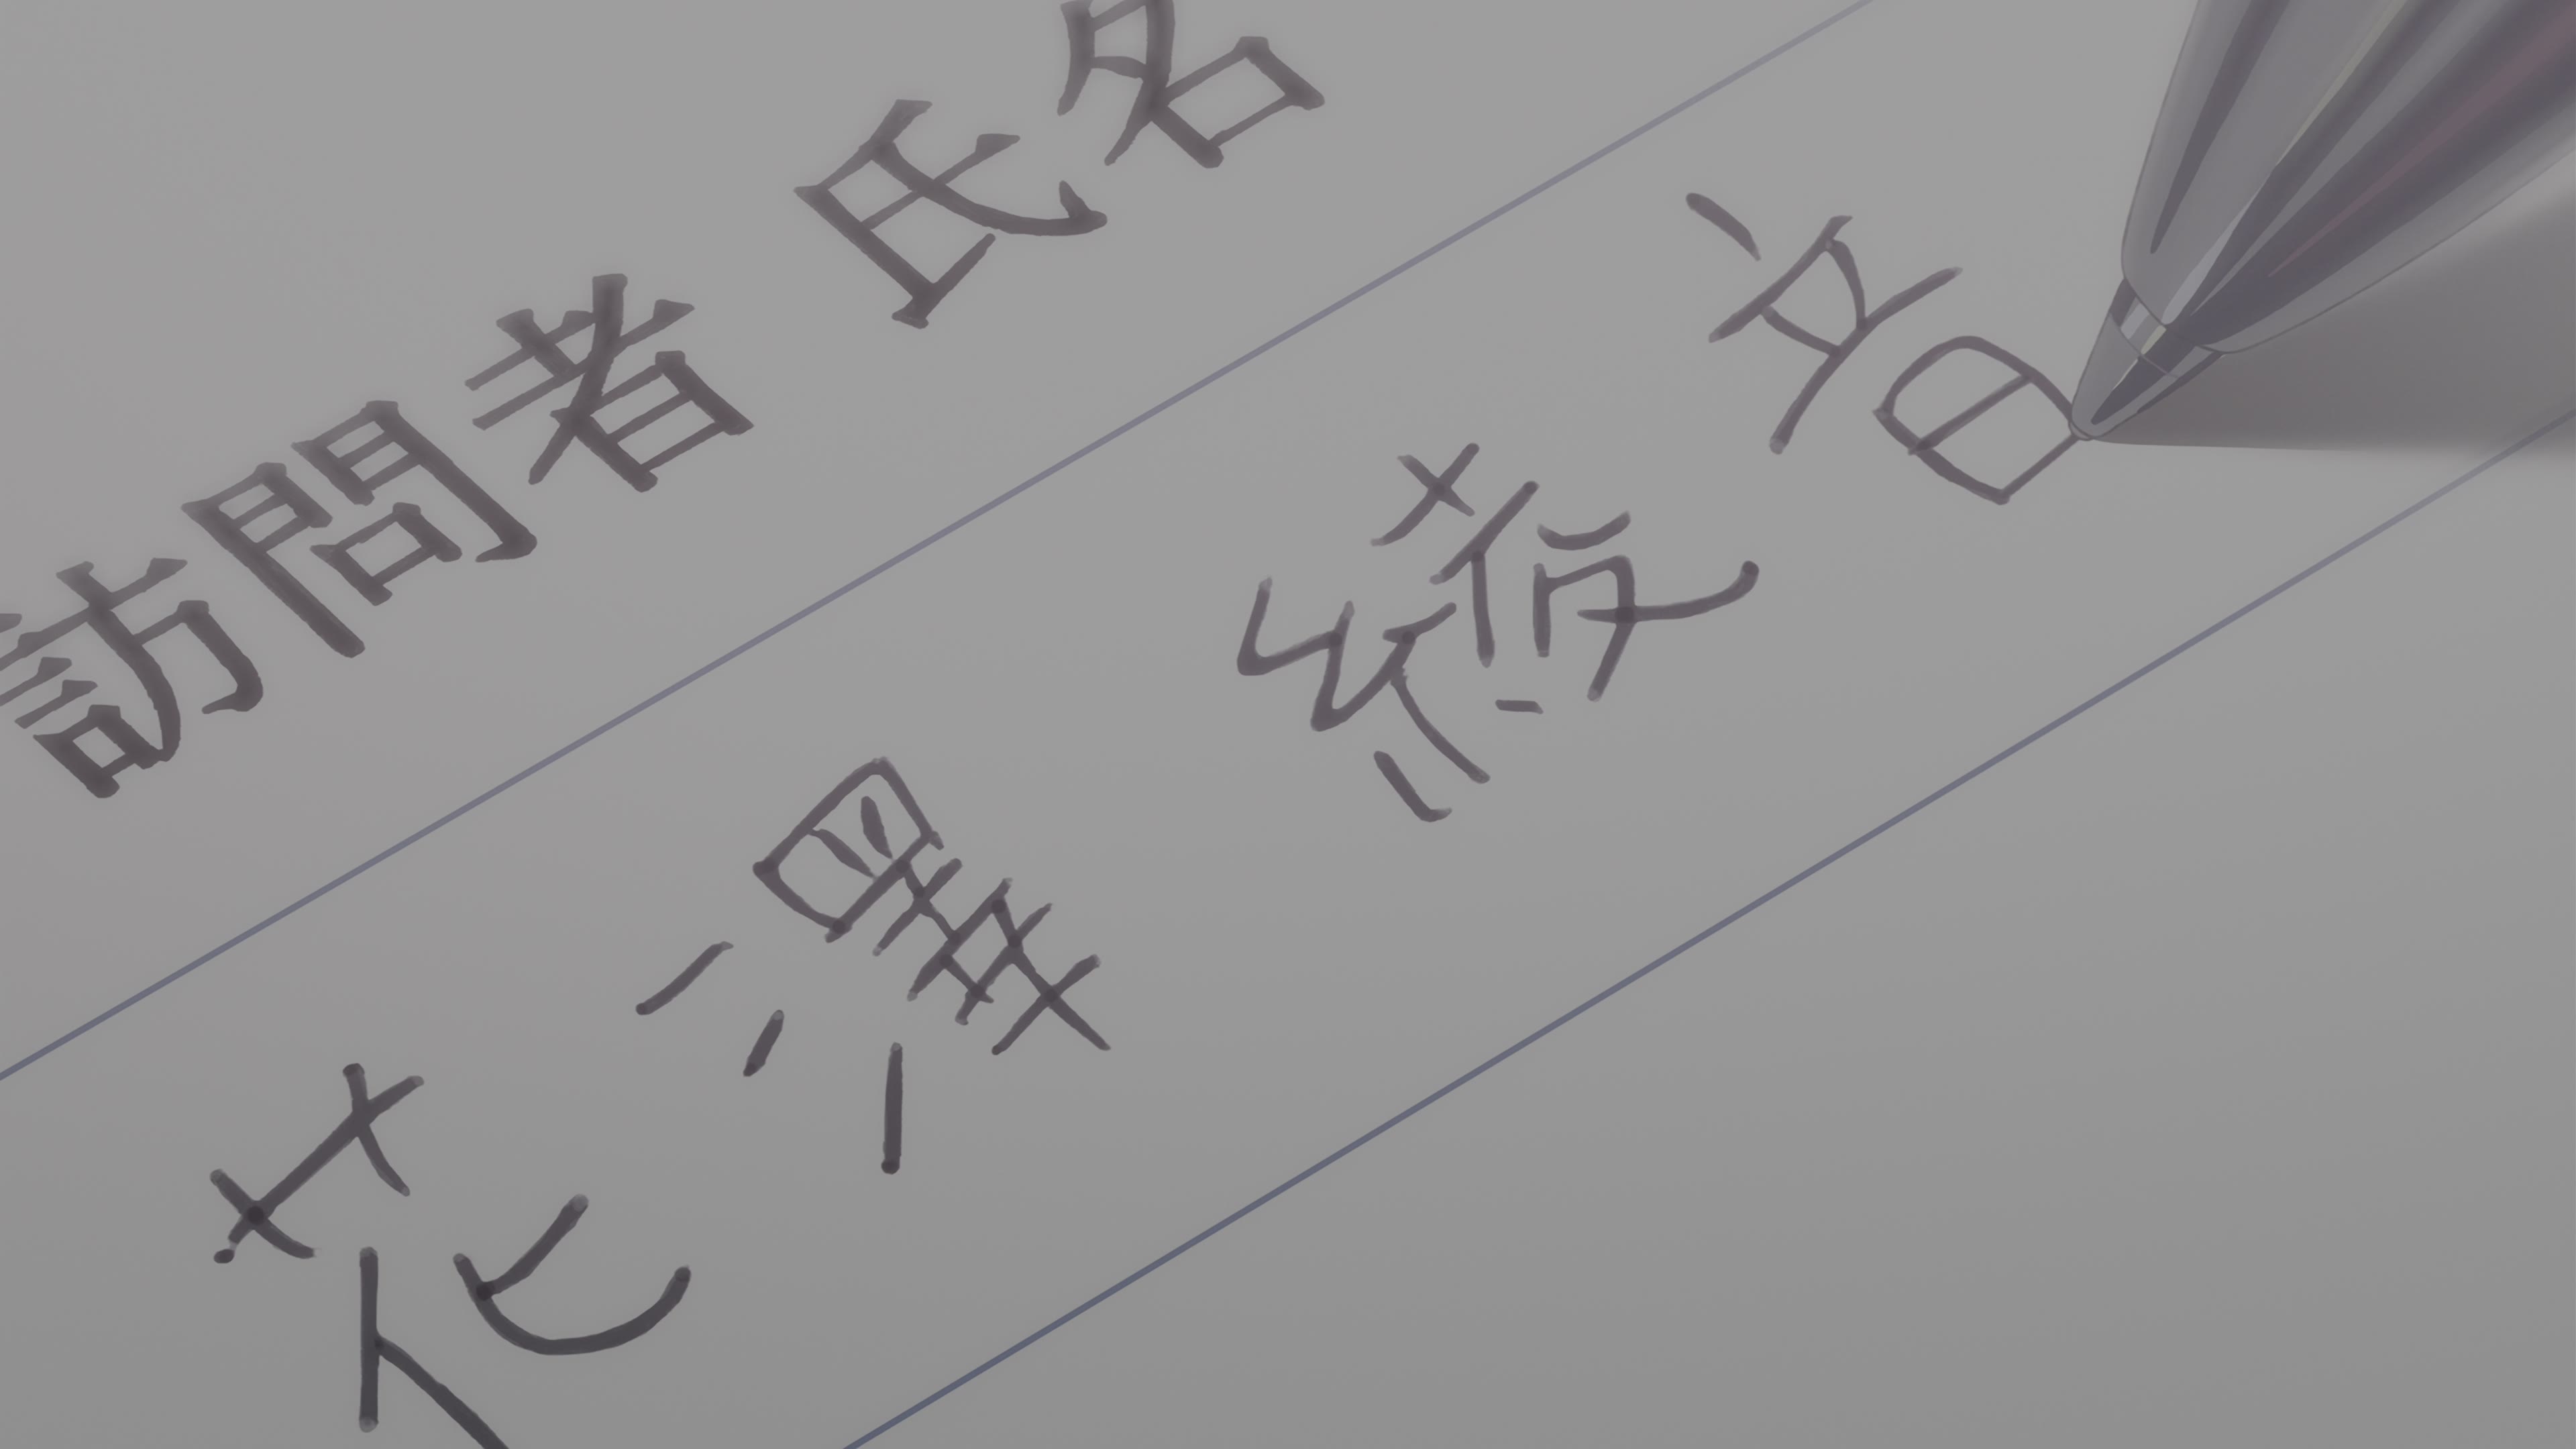 訪問者 氏名
花澤 綾音